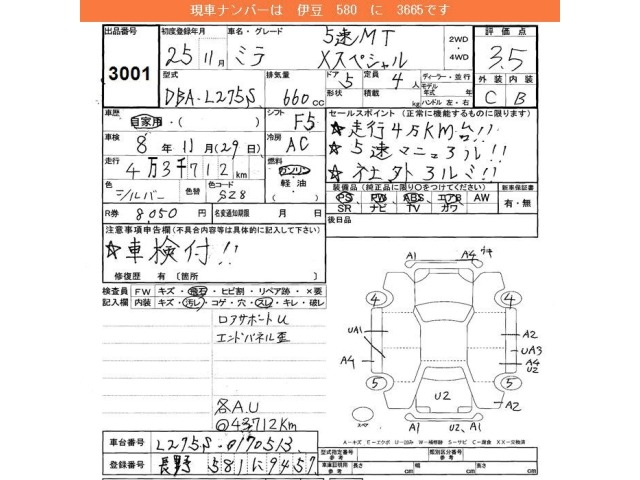 現車ナンバーは 伊豆 580 に 3665です
出品番号 3001
初度登録年月 25年11月
車名・グレード ミラ 5速MT Xスペシャル
2WD・4WD
評価点 3.5
型式 DBA-L275S
排気量 660cc
ドア 5
形状
定員 4人
積載 kg
ディーラー・並行
モデル年式 年
ハンドル 左・右
外装 C
内装 B
車歴 自家用・( )
シフト F5
セールスポイント (正常に機能するものに限ります)
☆走行4万KM台!!
☆5速マニュアル!!
☆社外アルミ!!
車検 8年11月(29日)
冷房 AC
走行 4万3千712km
燃料 ガソリン 軽油 ( )
色 シルバー
色替
色コード S28
装備品(純正品に限り○をつけてください)
PS PW ABS エアB AW
SR ナビ TV カワ
新車保証書 有・無
R券 8,050円
名変通知期限 月 日
後日品
注意事項申告欄(不具合内容等は具体的に記入して下さい)
☆車検付!!
修復歴 有 【箇所 】
検査員記入欄
FW キズ・飛石・ヒビ割・リペア跡・×要
内装 キズ・汚レ・コゲ・穴・スレ・キレ・破レ
ロアサポートU
エンドパネル歪
各A.U
@43712Km
A1 A4
4 4
UA1 A2
UA3
A4 A4
U2
5 5
U2
スペア
A1 U2、A1
A-キズ E-エクボ U-凹み W-補修跡 S-サビ C-腐食 XX-交換済
車台番号 L275S-0170513
登録番号 長野 581 に 9457
型式指定番号 参考
類別区分番号 参考
車庫証明用 参考 長さ cm 幅 cm 高さ cm